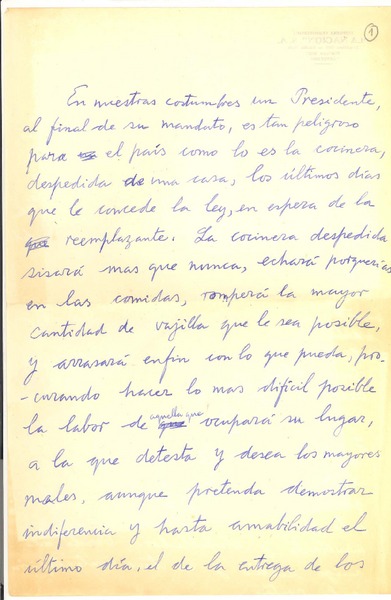 1
En nuestras costumbres un Presidente,
al final de su mandato, es tan peligroso
para el país como lo es la cocinera,
despedida de una casa, los últimos días
que le concede la ley, en espera de la
reemplazante. La cocinera despedida
sisará mas que nunca, echará porquerías
en las comidas, romperá la mayor
cantidad de vajilla que le sea posible,
y arrasará enfin con lo que pueda, pro-
-curando hacer lo mas difícil posible
la labor de aquella que ocupará su lugar,
a la que detesta y desea los mayores
males, aunque pretenda demostrar
indiferencia y hasta amabilidad el
último día, el de la entrega de los